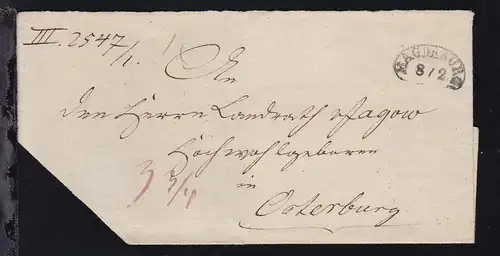 III. 2547/1.
MAGDEBURG
8/2
An
den Herrn Landrath v Jagow
Hochwohlgeboren
in
3 3/4
Osterburg